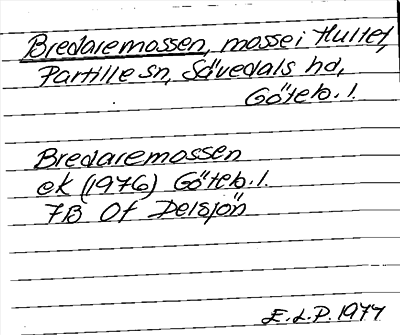 Bredaremossen, mosse i Hultet,
Partille sn, Sävedals hd,
Göteb. l.
Bredaremossen
ek (1976) Göteb. l.
7B 0f Delsjön
E.L.P. 1977